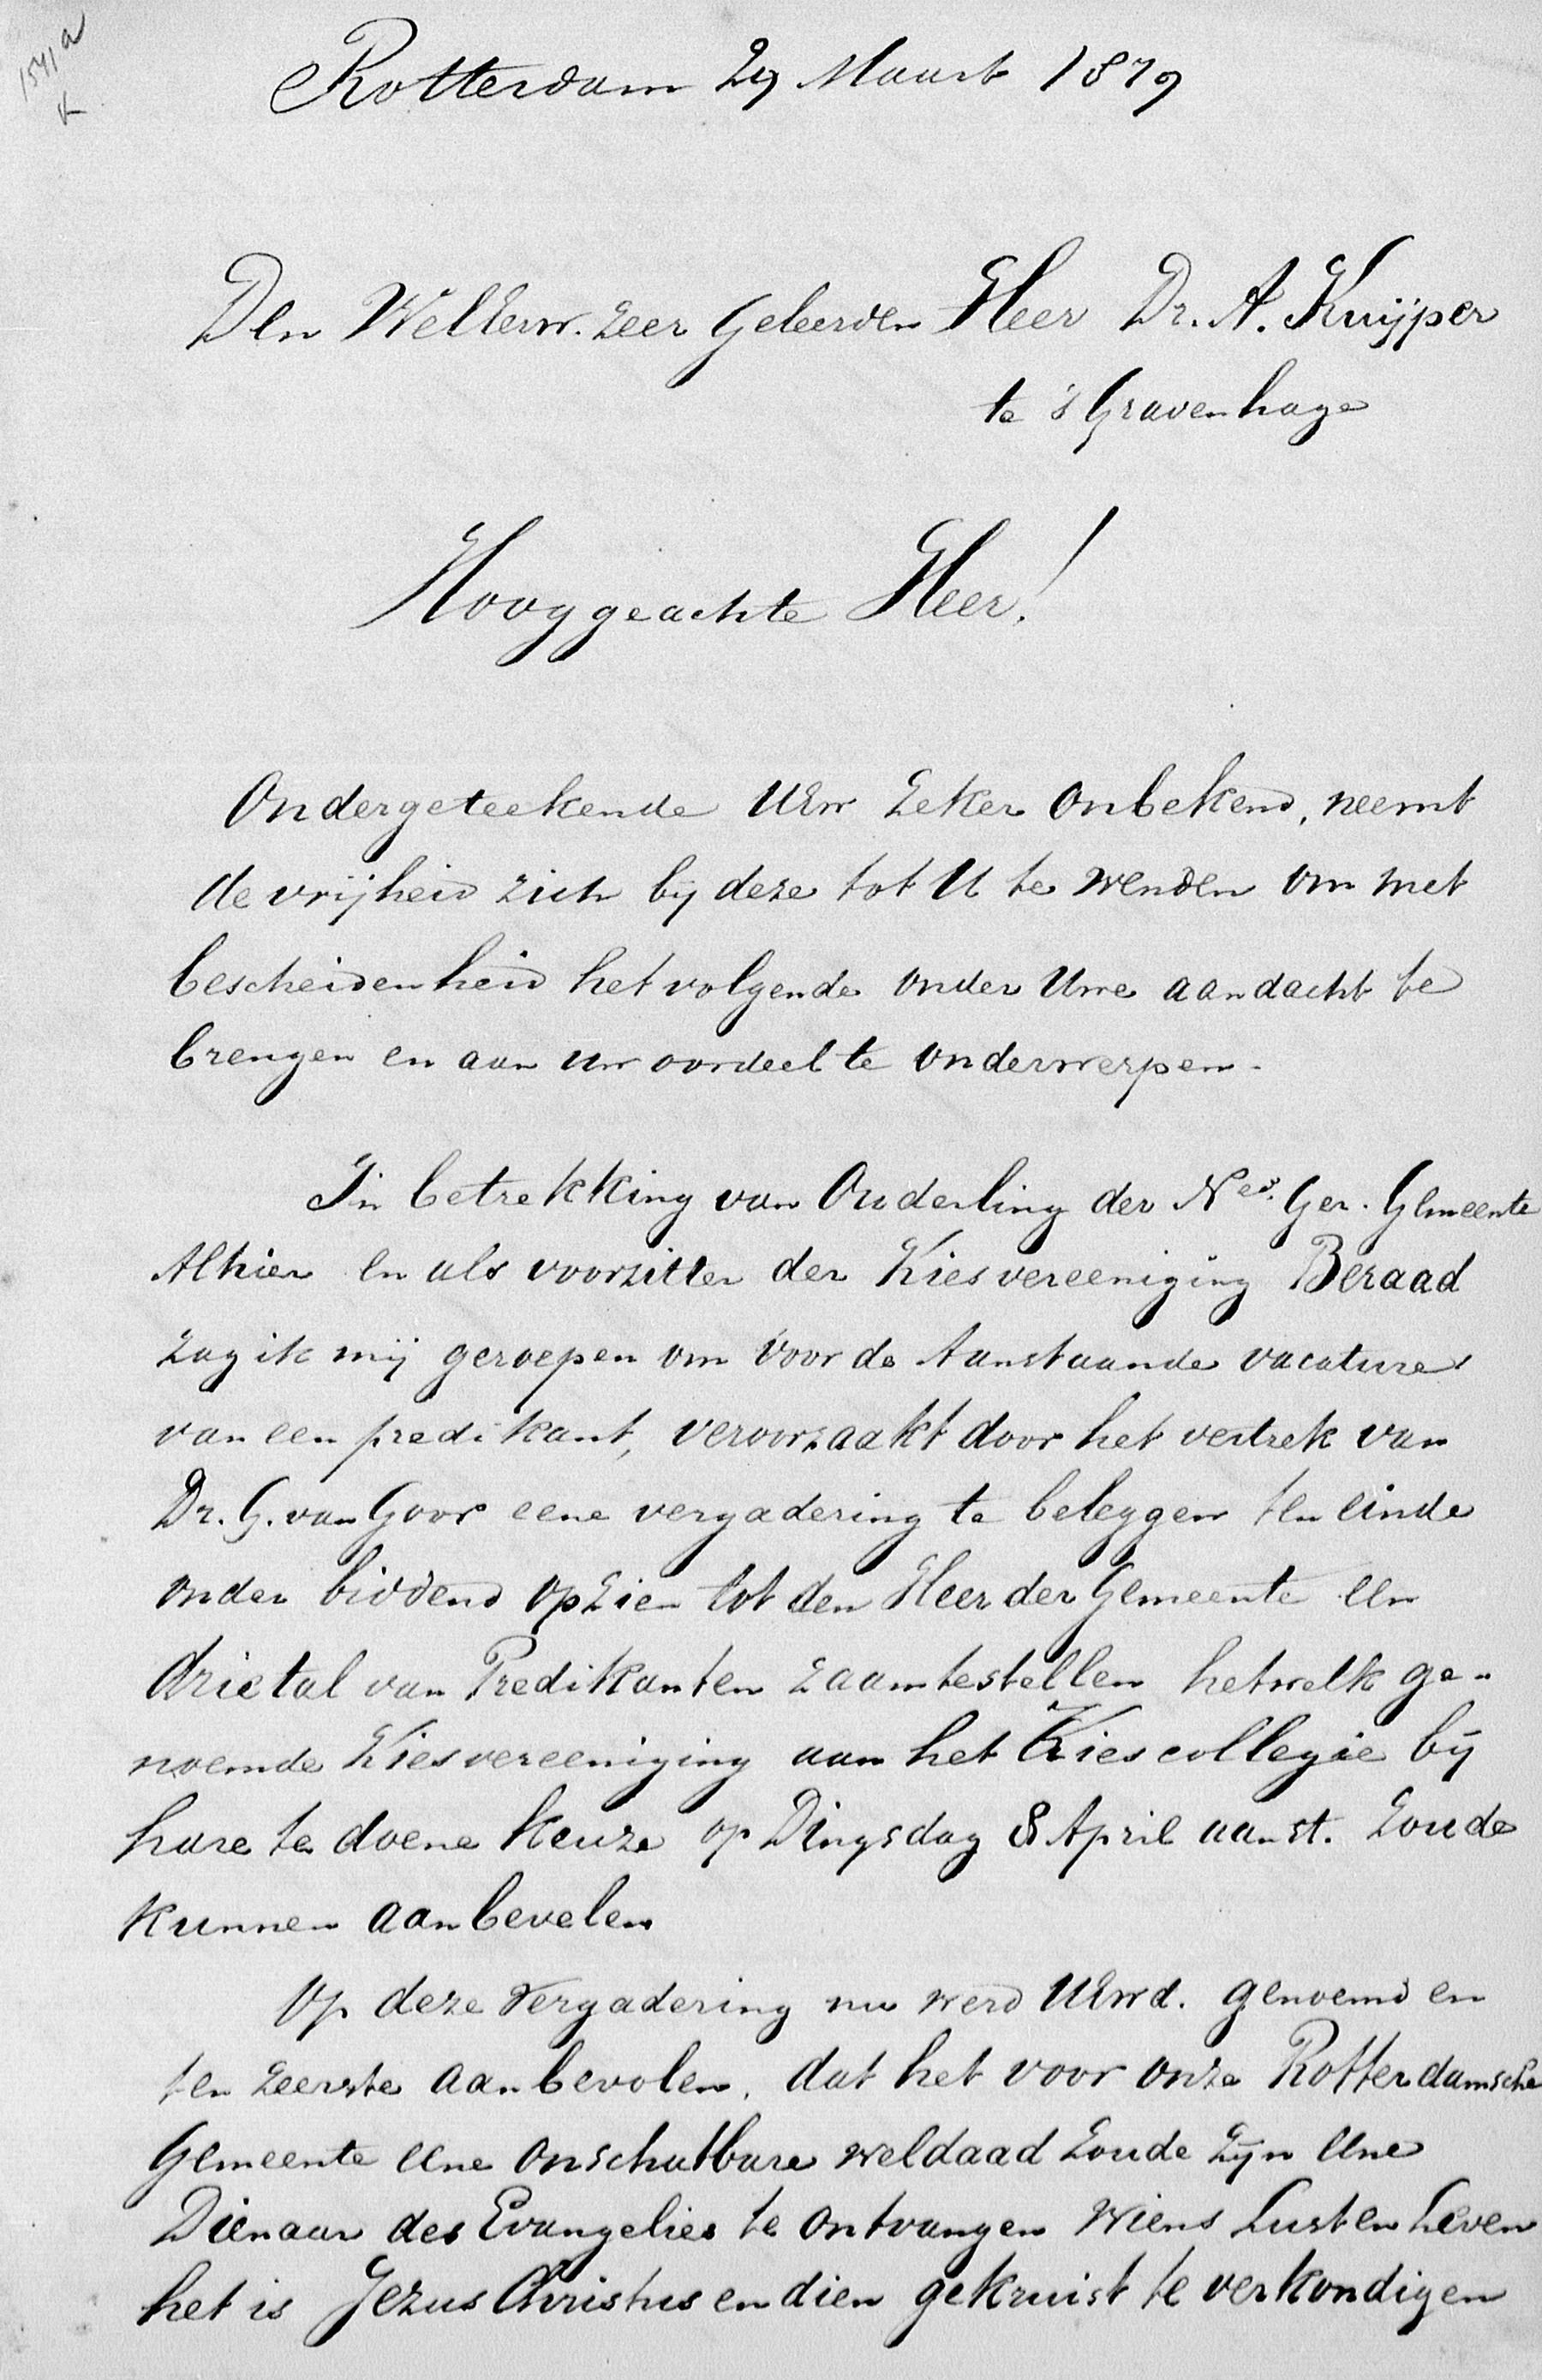 1541a
K
Rotterdam 29 Maart 1879
Den WelEerw. zeer Geleerden Heer Dr. A. Kuijper
te 's Gravenhage
Hooggeachte Heer!
Ondergeteekende UEw zeker onbekend, neemt
de vrijheid zich bij deze tot U te wenden om met
bescheidenheid het volgende onder Uwe aandacht te
brengen en aan uw oordeel te onderwerpen.
In betrekking van Ouderling der Ned. Ger. Gemeente
Alhier en als voorzitter der Kiesvereeniging Beraad
zag ik mij geroepen om voor de Aanstaande vacature
van een predikant, veroorzaakt door het vertrek van
Dr. G. van Goor eene vergadering te beleggen ten einde
onder biddend opzien tot den Heer der Gemeente een
drietal van Predikanten zaamtestellen hetwelk ge-
noemde Kiesvereeniging aan het Kiescollegie bij
hare te doene keuze op Dingsdag 8 April aanst. zoude
kunnen aanbevelen
Op deze Vergadering nu werd UEwd. genoemd en
ten zeerste aanbevolen, dat het voor onze Rotterdamsche
Gemeente eene onschatbare weldaad zoude zijn eene
Dienaar des Evangelies te ontvangen wiens Lust en Leven
het is Jezus Christus en dien gekruist te verkondigen